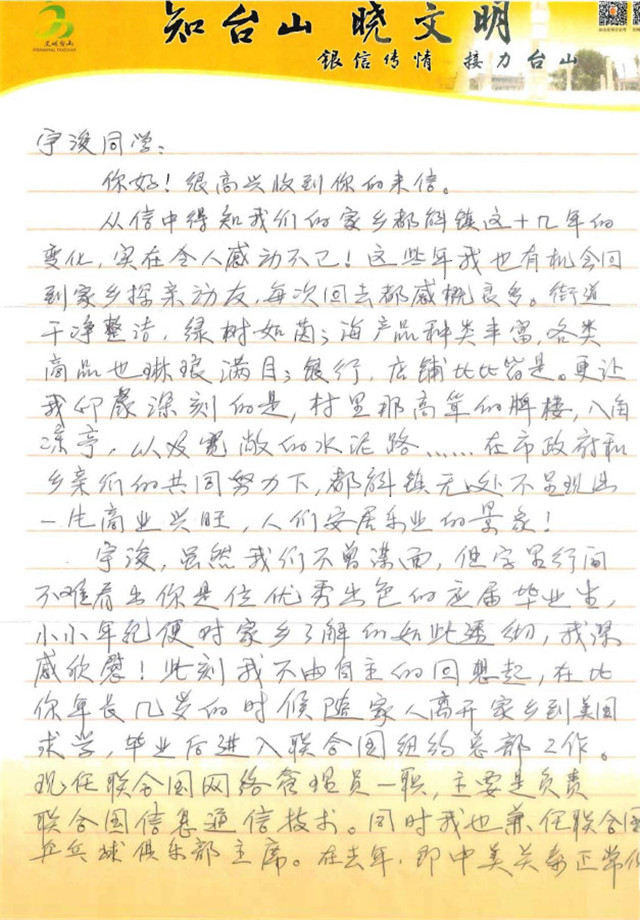 知台山 晓文明
银信传情 接力台山
文明台山
宇浚同学:
你好!很高兴收到你的来信。
从信中得知我们的家乡都斛镇这十几年的
变化,实在令人感动不已!这些年我也有机会回
到家乡探亲访友,每次回去都感概良多。街道
干净整洁,绿树如茵;海产品种类丰富,各类
商品也琳琅满目;银行,店铺比比皆是。更让
我印象深刻的是,村里那高耸的牌楼,八角
凉亭,以及宽敞的水泥路……在市政府和
乡亲们的共同努力下,都斛镇无处不呈现出
一片商业兴旺,人们安居乐业的景象!
宇浚,虽然我们不曾谋面,但字里行间
不难看出你是位优秀出色的应届毕业生,
小小年纪便对家乡了解的如此透彻,我深
感欣慰!此刻我不由自主的回想起,在比
你年长几岁的时候随家人离开家乡到美国
求学,毕业后进入联合国纽约总部工作。
现任联合国网络管理员一职,主要是负责
联合国信息通信技术。同时我也兼任联合国
乒乓球俱乐部主席。在去年,即中美关系正常化